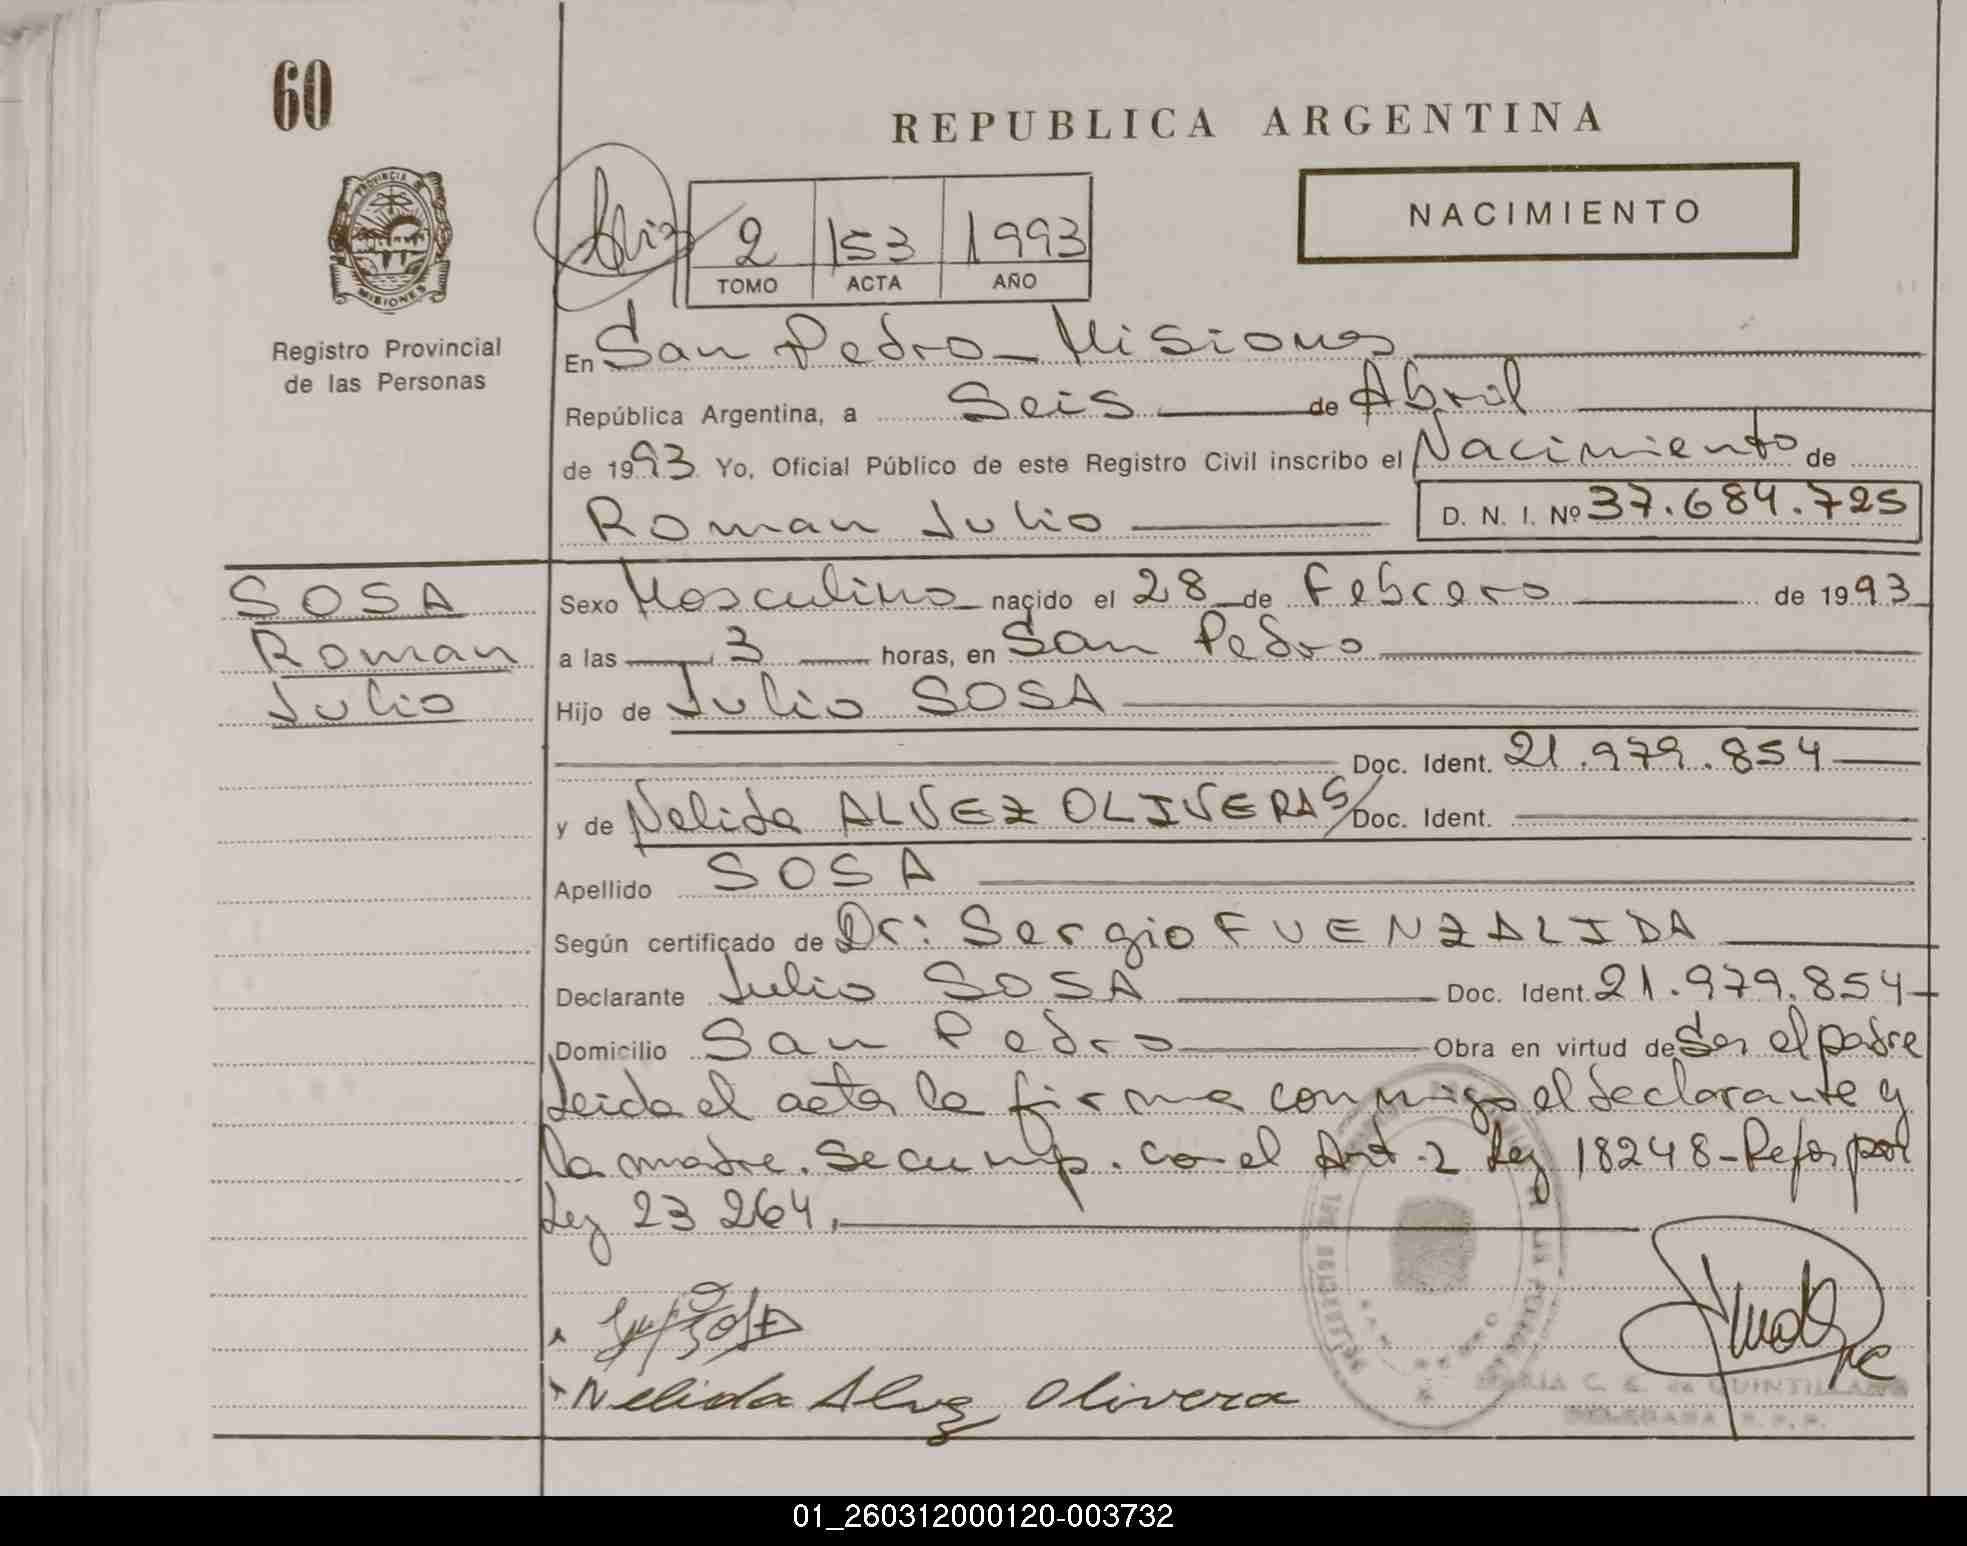 60
REPUBLICA ARGENTINA
PROVINCIA DE
MISIONES
NACIMIENTO
2 153 1993
TOMO ACTA AÑO
Registro Provincial
de las Personas
En San Pedro - Misiones
República Argentina, a Seis de Abril
de 1993 Yo, Oficial Público de este Registro Civil inscribo el Nacimiento de
Roman Julio D. N. I. Nº 37.684.725
SOSA
Roman
Julio
Sexo Masculino nacido el 28 de Febrero de 1993
a las 3 horas, en San Pedro
Hijo de Julio SOSA
Doc. Ident. 21.979.854
y de Nelida ALVEZ OLIVERAS/ Doc. Ident.
Apellido SOSA
Según certificado de Dr: Sergio FUENZALIDA
Declarante Julio SOSA Doc. Ident. 21.979.854
Domicilio San Pedro Obra en virtud de Ser el padre
Leida el acta la firma conmigo el declarante y
la madre. Se cump. con el Art. 2 Ley 18248 - Refor por
Ley 23264.
SOSA
Nelida Alvez Olivera
SAN PEDRO
MARIA C. E. de QUINTILLANA
DELEGADA R. P. P.
01_260312000120-003732